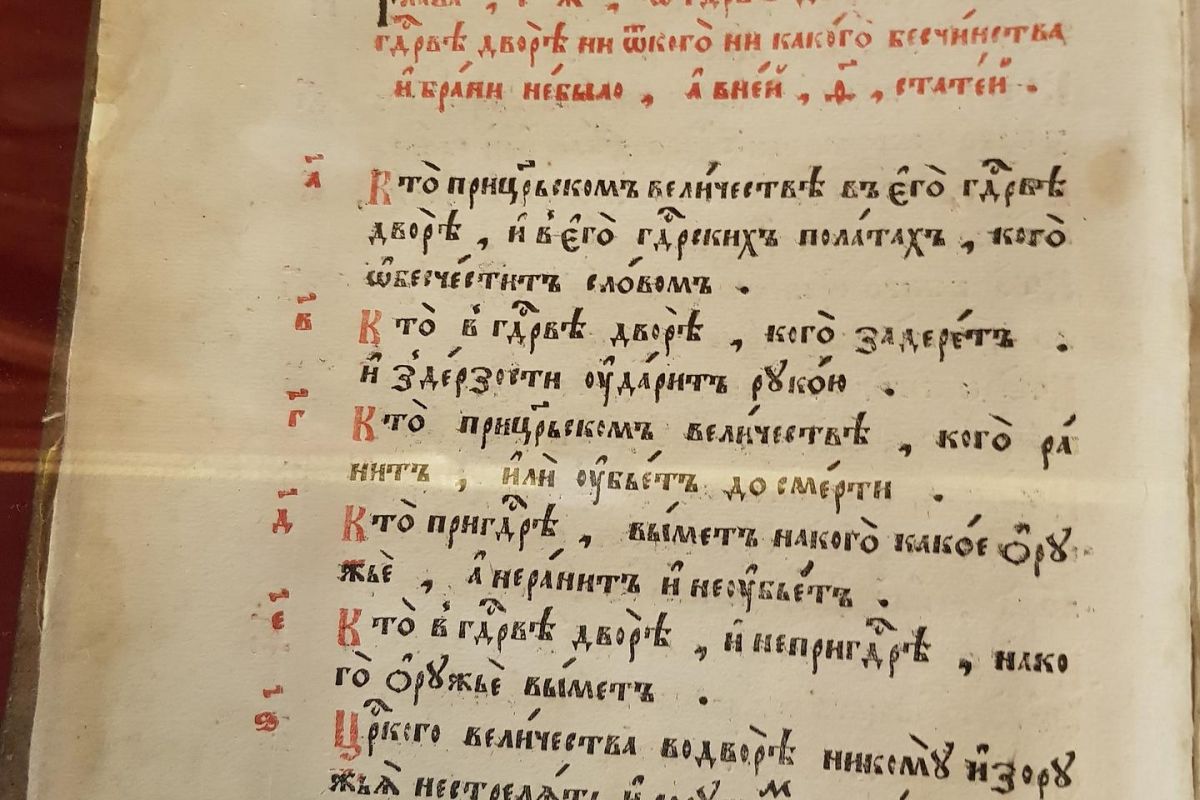 гдⷭ҇рвѣ дворѣ̀ ни ѿкогѡ̀ ни како́гѡ бесчи́нства
и҆ бра́ни не́было , а҆ вне́й , д҃ , стате́й .
а҃ Кто̀ прицрⷭ҇ьскомъ вели́чествѣ въ є҆го̀ гдⷭ҇рвѣ
дворѣ̀ , и҆ в є҆го̀ гдⷭ҇рскихъ пола́тахъ , кого̀
ѡ҆бесче́ститъ сло́вомъ .
в҃ Кто̀ в гдⷭ҇рвѣ дворѣ̀ , кого̀ задере́тъ .
и҆ здде́рзости ᲂу҆да́ритъ рꙋко́ю .
г҃ Кто̀ прицрⷭ҇ьскомъ вели́чествѣ , кого̀ ра́
нитъ , и҆лѝ ᲂу҆бье́тъ до сме́рти .
д҃ Кто̀ пригдⷭ҇рѣ , вы́метъ накого̀ како́е ѻ҆рꙋ
жьѐ , а҆ нера́нитъ и҆ неᲂу҆бье́тъ .
е҃ Кто̀ в гдⷭ҇рвѣ дворѣ̀ , и҆ непригдⷭ҇рѣ , нако
го̀ ѻ҆рꙋжьѐ вы́метъ .
ѕ҃ Црⷭ҇кого вели́чества водворѣ̀ никомꙋ̀ и҆зорꙋ
жьѧ̀ нестрелѧ́ть